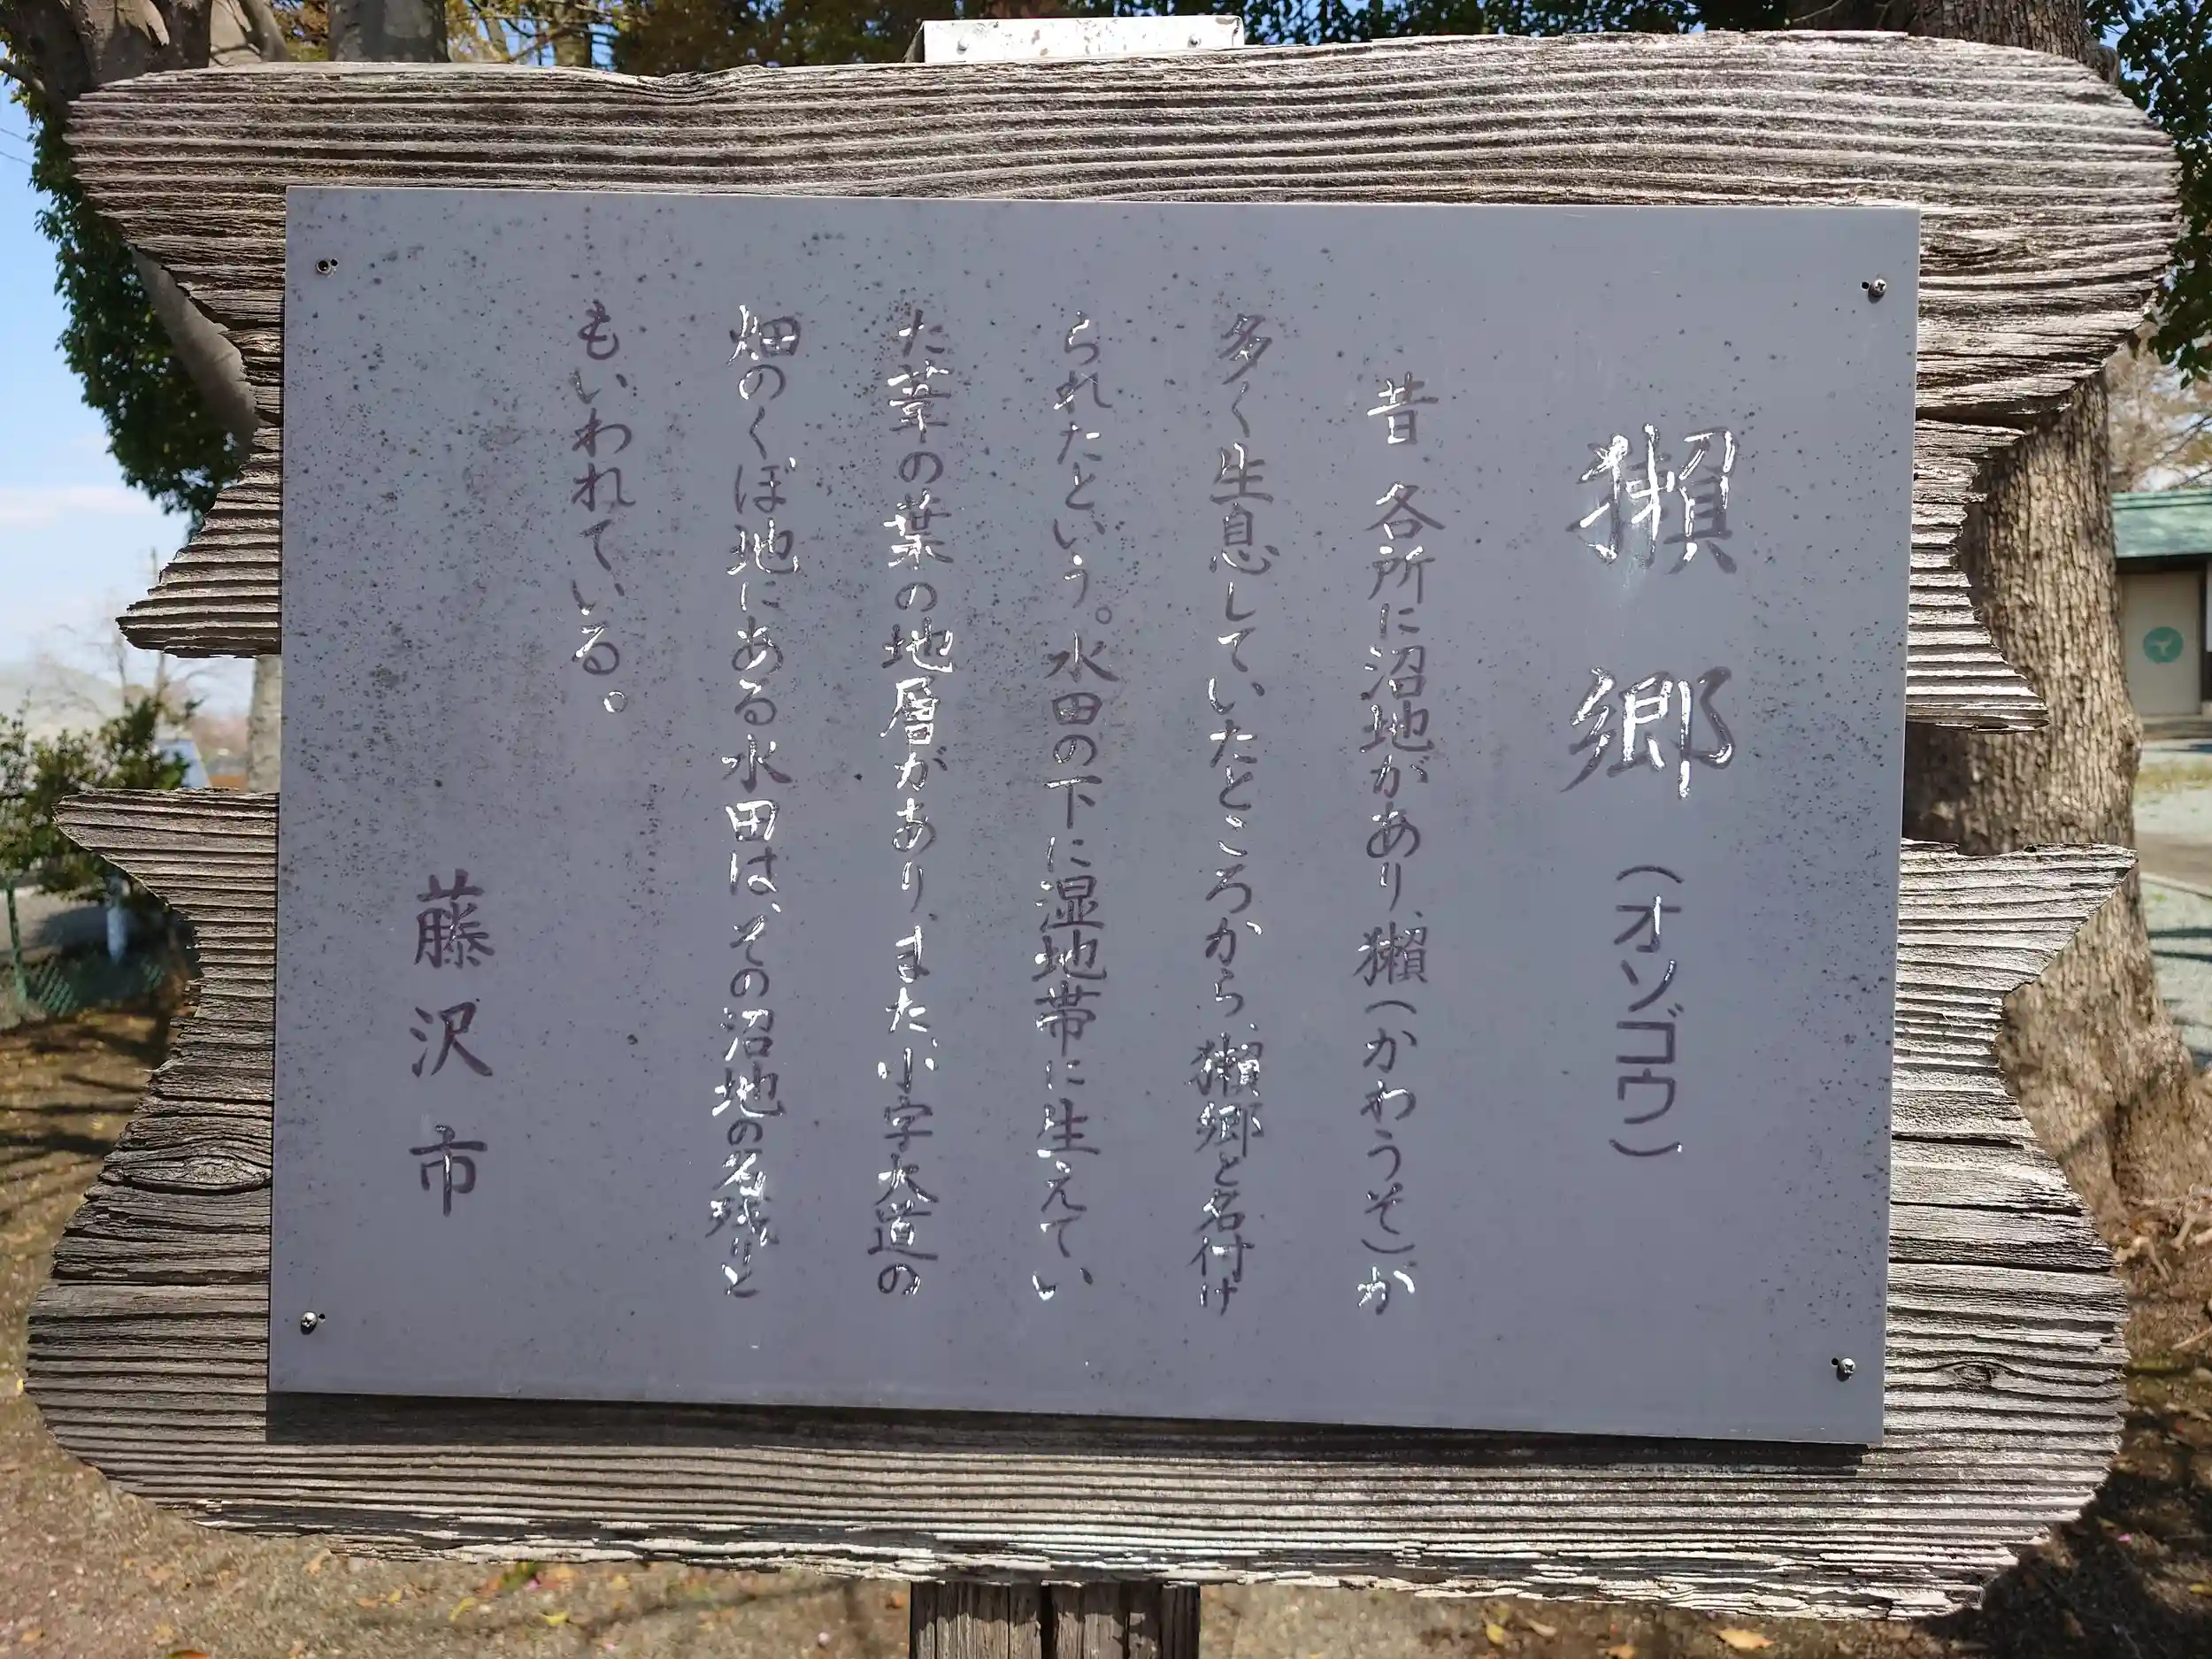 獺郷（オゾゴウ）
昔 各所に沼地があり、獺（かわうそ）が
多く生息していたところから、獺郷と名付け
られたという。水田の下に湿地帯に生えてい
た葦の葉の地層があり、また、小字大道の
畑のくぼ地にある水田は、その沼地の名残りと
もいわれている。
藤沢市